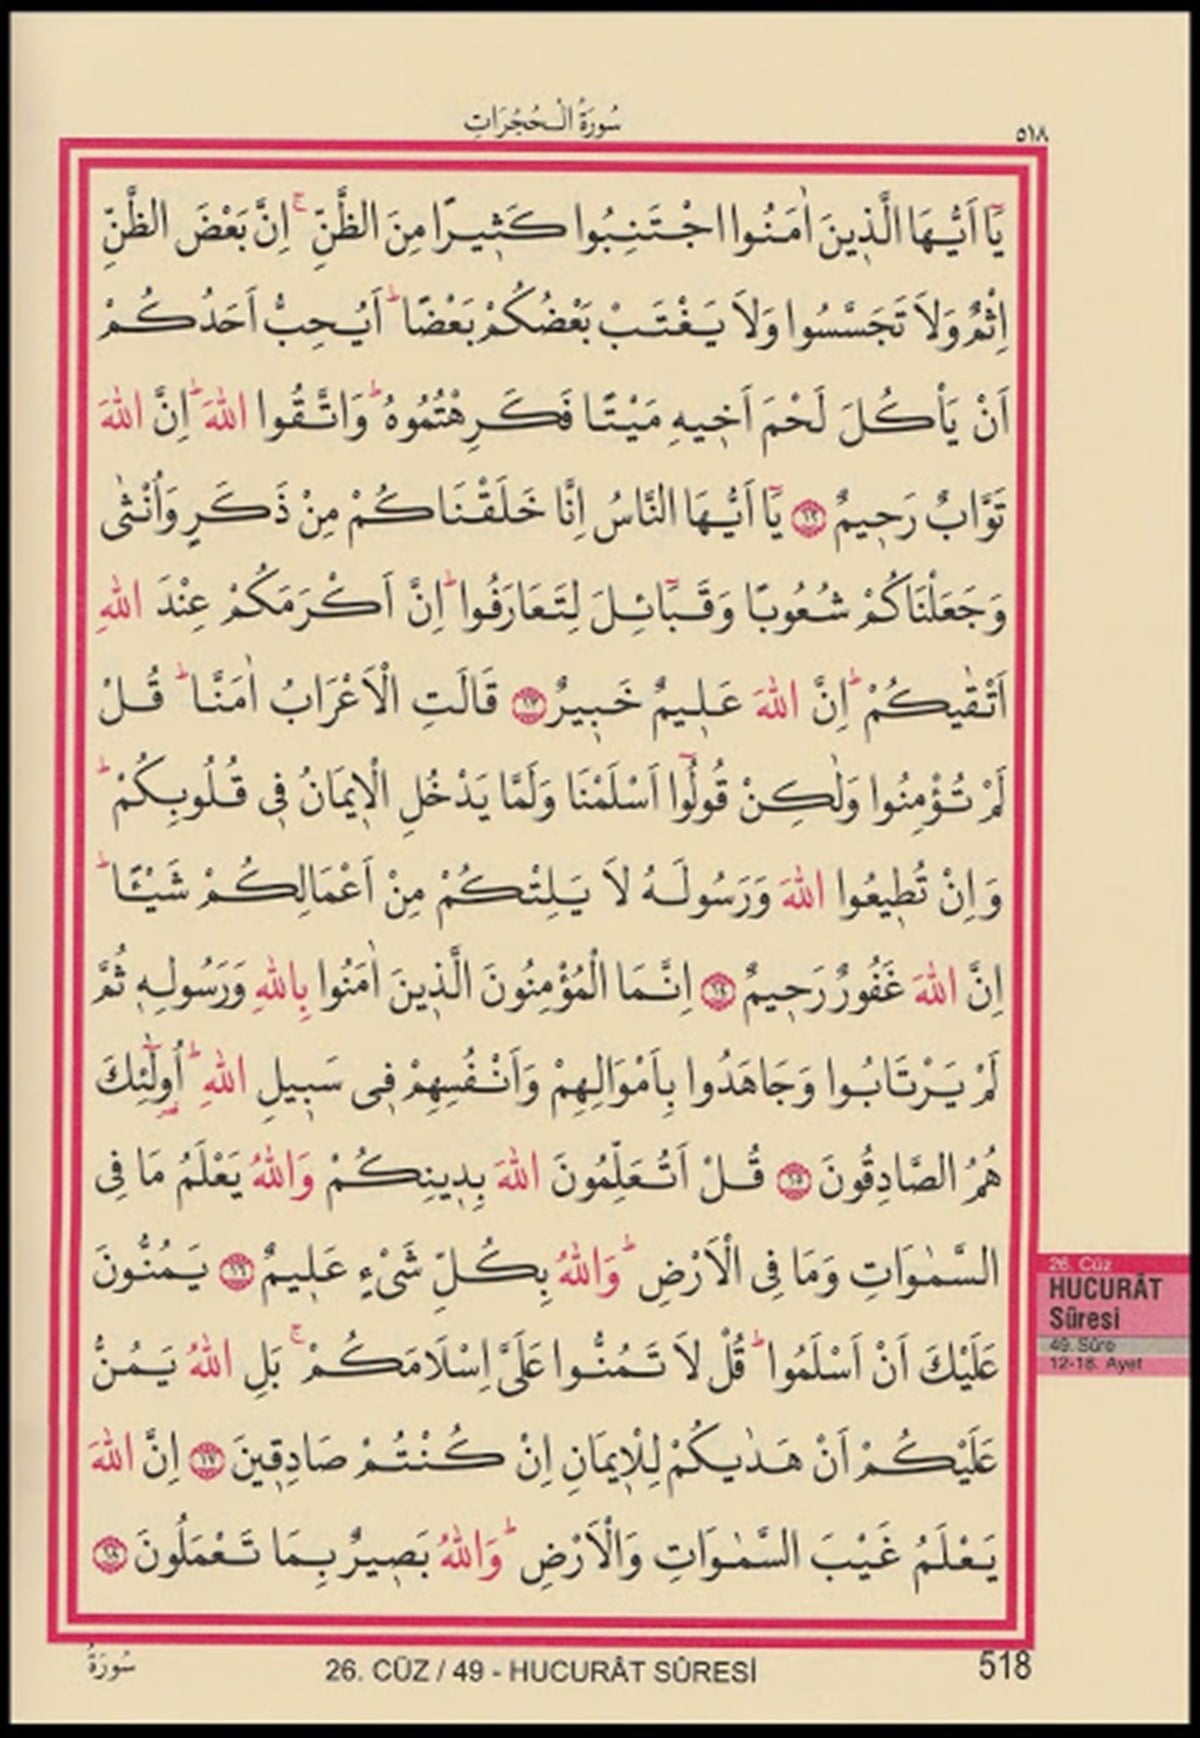 سُورَةُ الْحُجُرَاتِ
٥١٨
يَٓا اَيُّهَا الَّذ۪ينَ اٰمَنُوا اجْتَنِبُوا كَث۪يرًا مِنَ الظَّنِّۚ اِنَّ بَعْضَ الظَّنِّ
اِثْمٌ وَلَا تَجَسَّسُوا وَلَا يَغْتَبْ بَعْضُكُمْ بَعْضًاۜ اَيُحِبُّ اَحَدُكُمْ
اَنْ يَأْكُلَ لَحْمَ اَخ۪يهِ مَيْتًا فَكَرِهْتُمُوهُۜ وَاتَّقُوا اللّٰهَۜ اِنَّ اللّٰهَ
تَوَّابٌ رَح۪يمٌ ﴿١٢﴾ يَٓا اَيُّهَا النَّاسُ اِنَّا خَلَقْنَاكُمْ مِنْ ذَكَرٍ وَاُنْثٰى
وَجَعَلْنَاكُمْ شُعُوبًا وَقَبَٓائِلَ لِتَعَارَفُواۜ اِنَّ اَكْرَمَكُمْ عِنْدَ اللّٰهِ
اَتْقٰيكُمْۜ اِنَّ اللّٰهَ عَل۪يمٌ خَب۪يرٌ ﴿١٣﴾ قَالَتِ الْاَعْرَابُ اٰمَنَّاۜ قُلْ
لَمْ تُؤْمِنُوا وَلٰكِنْ قُولُٓوا اَسْلَمْنَا وَلَمَّا يَدْخُلِ الْا۪يمَانُ ف۪ي قُلُوبِكُمْۜ
وَاِنْ تُط۪يعُوا اللّٰهَ وَرَسُولَهُ لَا يَلِتْكُمْ مِنْ اَعْمَالِكُمْ شَيْـًٔاۜ
اِنَّ اللّٰهَ غَفُورٌ رَح۪يمٌ ﴿١٤﴾ اِنَّمَا الْمُؤْمِنُونَ الَّذ۪ينَ اٰمَنُوا بِاللّٰهِ وَرَسُولِه۪ ثُمَّ
لَمْ يَرْتَابُوا وَجَاهَدُوا بِاَمْوَالِهِمْ وَاَنْفُسِهِمْ ف۪ي سَب۪يلِ اللّٰهِۜ اُو۬لٰٓئِكَ
هُمُ الصَّادِقُونَ ﴿١٥﴾ قُلْ اَتُعَلِّمُونَ اللّٰهَ بِد۪ينِكُمْ وَاللّٰهُ يَعْلَمُ مَا فِي
السَّمٰوَاتِ وَمَا فِي الْاَرْضِۜ وَاللّٰهُ بِكُلِّ شَيْءٍ عَل۪يمٌ ﴿١٦﴾ يَمُنُّونَ
عَلَيْكَ اَنْ اَسْلَمُواۜ قُلْ لَا تَمُنُّوا عَلَيَّ اِسْلَامَكُمْۚ بَلِ اللّٰهُ يَمُنُّ
عَلَيْكُمْ اَنْ هَدٰيكُمْ لِلْا۪يمَانِ اِنْ كُنْتُمْ صَادِق۪ينَ ﴿١٧﴾ اِنَّ اللّٰهَ
يَعْلَمُ غَيْبَ السَّمٰوَاتِ وَالْاَرْضِۜ وَاللّٰهُ بَص۪يرٌ بِمَا تَعْمَلُونَ ﴿١٨﴾
26. Cüz
HUCURÂT
Sûresi
49. Sûre
12-18. Ayet
سُورَةُ
26. CÜZ / 49 - HUCURÂT SÛRESİ
518